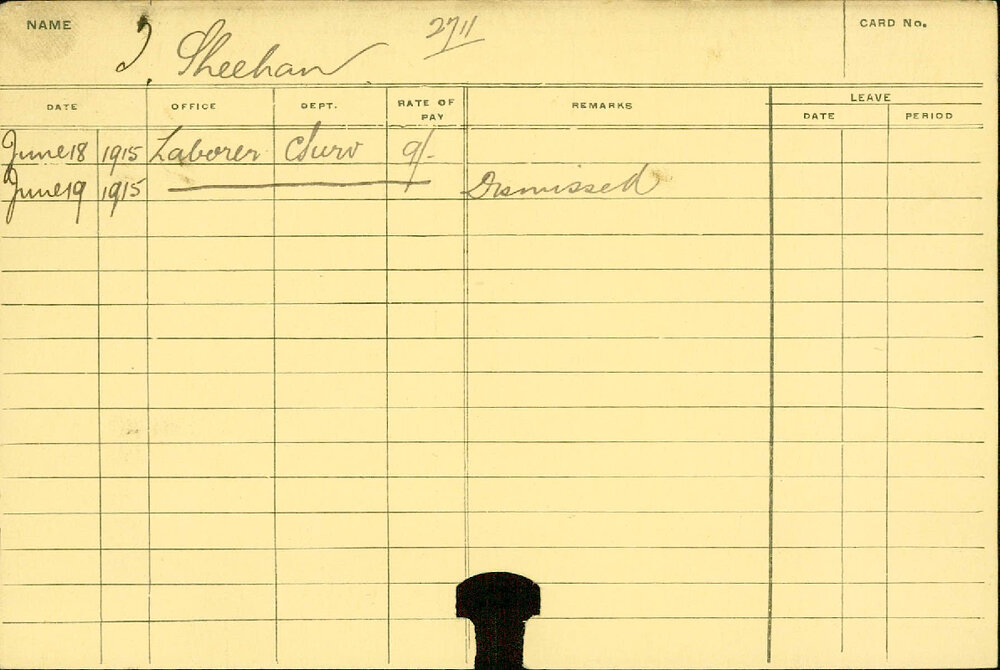 NAME
CARD No.
2711
Sheehan
DATE OFFICE DEPT. RATE OF PAY REMARKS LEAVE
DATE PERIOD
June 18 1915 Laborer C Surv 9/-
June 19 1915 Dismissed